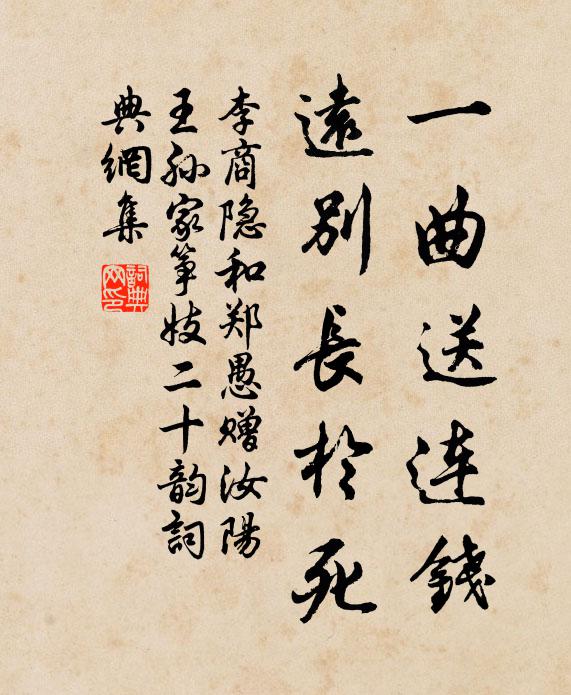 一曲送连錢
遠别長於死
李商隐和郑愚赠汝陽
王孙家筝妓二十韵詞
典網集
詞典网印